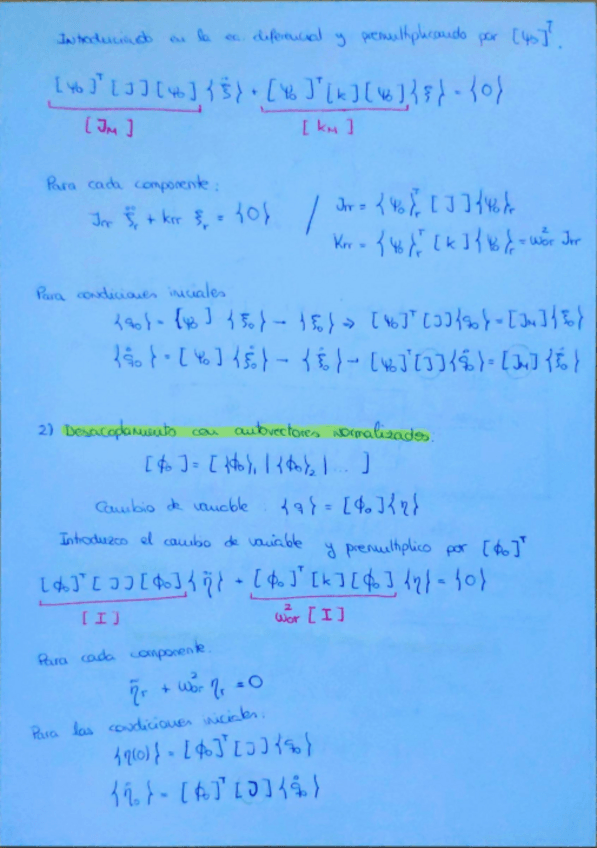 Introduciendo en la ec. diferencial y premultiplicando por [ψ₀]ᵀ.
[ψ₀]ᵀ [J] [ψ₀] {ξ̈} + [ψ₀]ᵀ [k] [ψ₀] {ξ} = {0}
[J_M] [k_M]
Para cada componente:
Jrr ξ̈r + krr ξr = {0} / Jrr = {ψ₀}ᵀr [J] {ψ₀}r
Krr = {ψ₀}ᵀr [k] {ψ₀}r = ω²or Jrr
Para condiciones iniciales
{q₀} = [ψ₀] {ξ₀} → {ξ₀} ⇒ [ψ₀]ᵀ [J] {q₀} = [J_M] {ξ₀}
{q̇₀} = [ψ₀] {ξ̇₀} → {ξ̇₀} → [ψ₀]ᵀ [J] {q̇₀} = [J_M] {ξ̇₀}
2) Desacoplamiento con autovectores normalizados.
[ϕ₀] = [{ϕ₀}₁ | {ϕ₀}₂ | ... ]
Cambio de variable : {q} = [ϕ₀] {η}
Introduzco el cambio de variable y premultiplico por [ϕ₀]ᵀ
[ϕ₀]ᵀ [J] [ϕ₀] {η̈} + [ϕ₀]ᵀ [k] [ϕ₀] {η} = {0}
[I] ω²or [I]
Para cada componente.
η̈r + ω²or ηr = 0
Para las condiciones iniciales:
{η(0)} = [ϕ₀]ᵀ [J] {q₀}
{η̇₀} = [ϕ₀]ᵀ [J] {q̇₀}